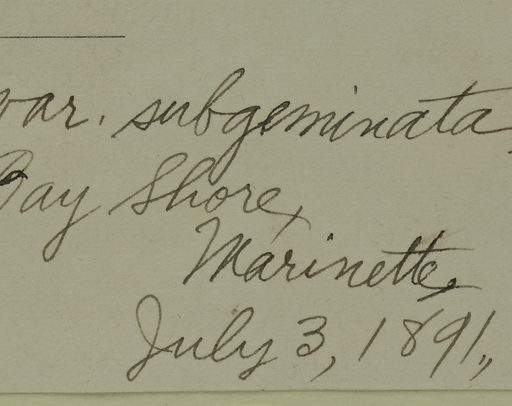 var. subgeminata,
Bay Shore,
Marinette,
July 3, 1891,,